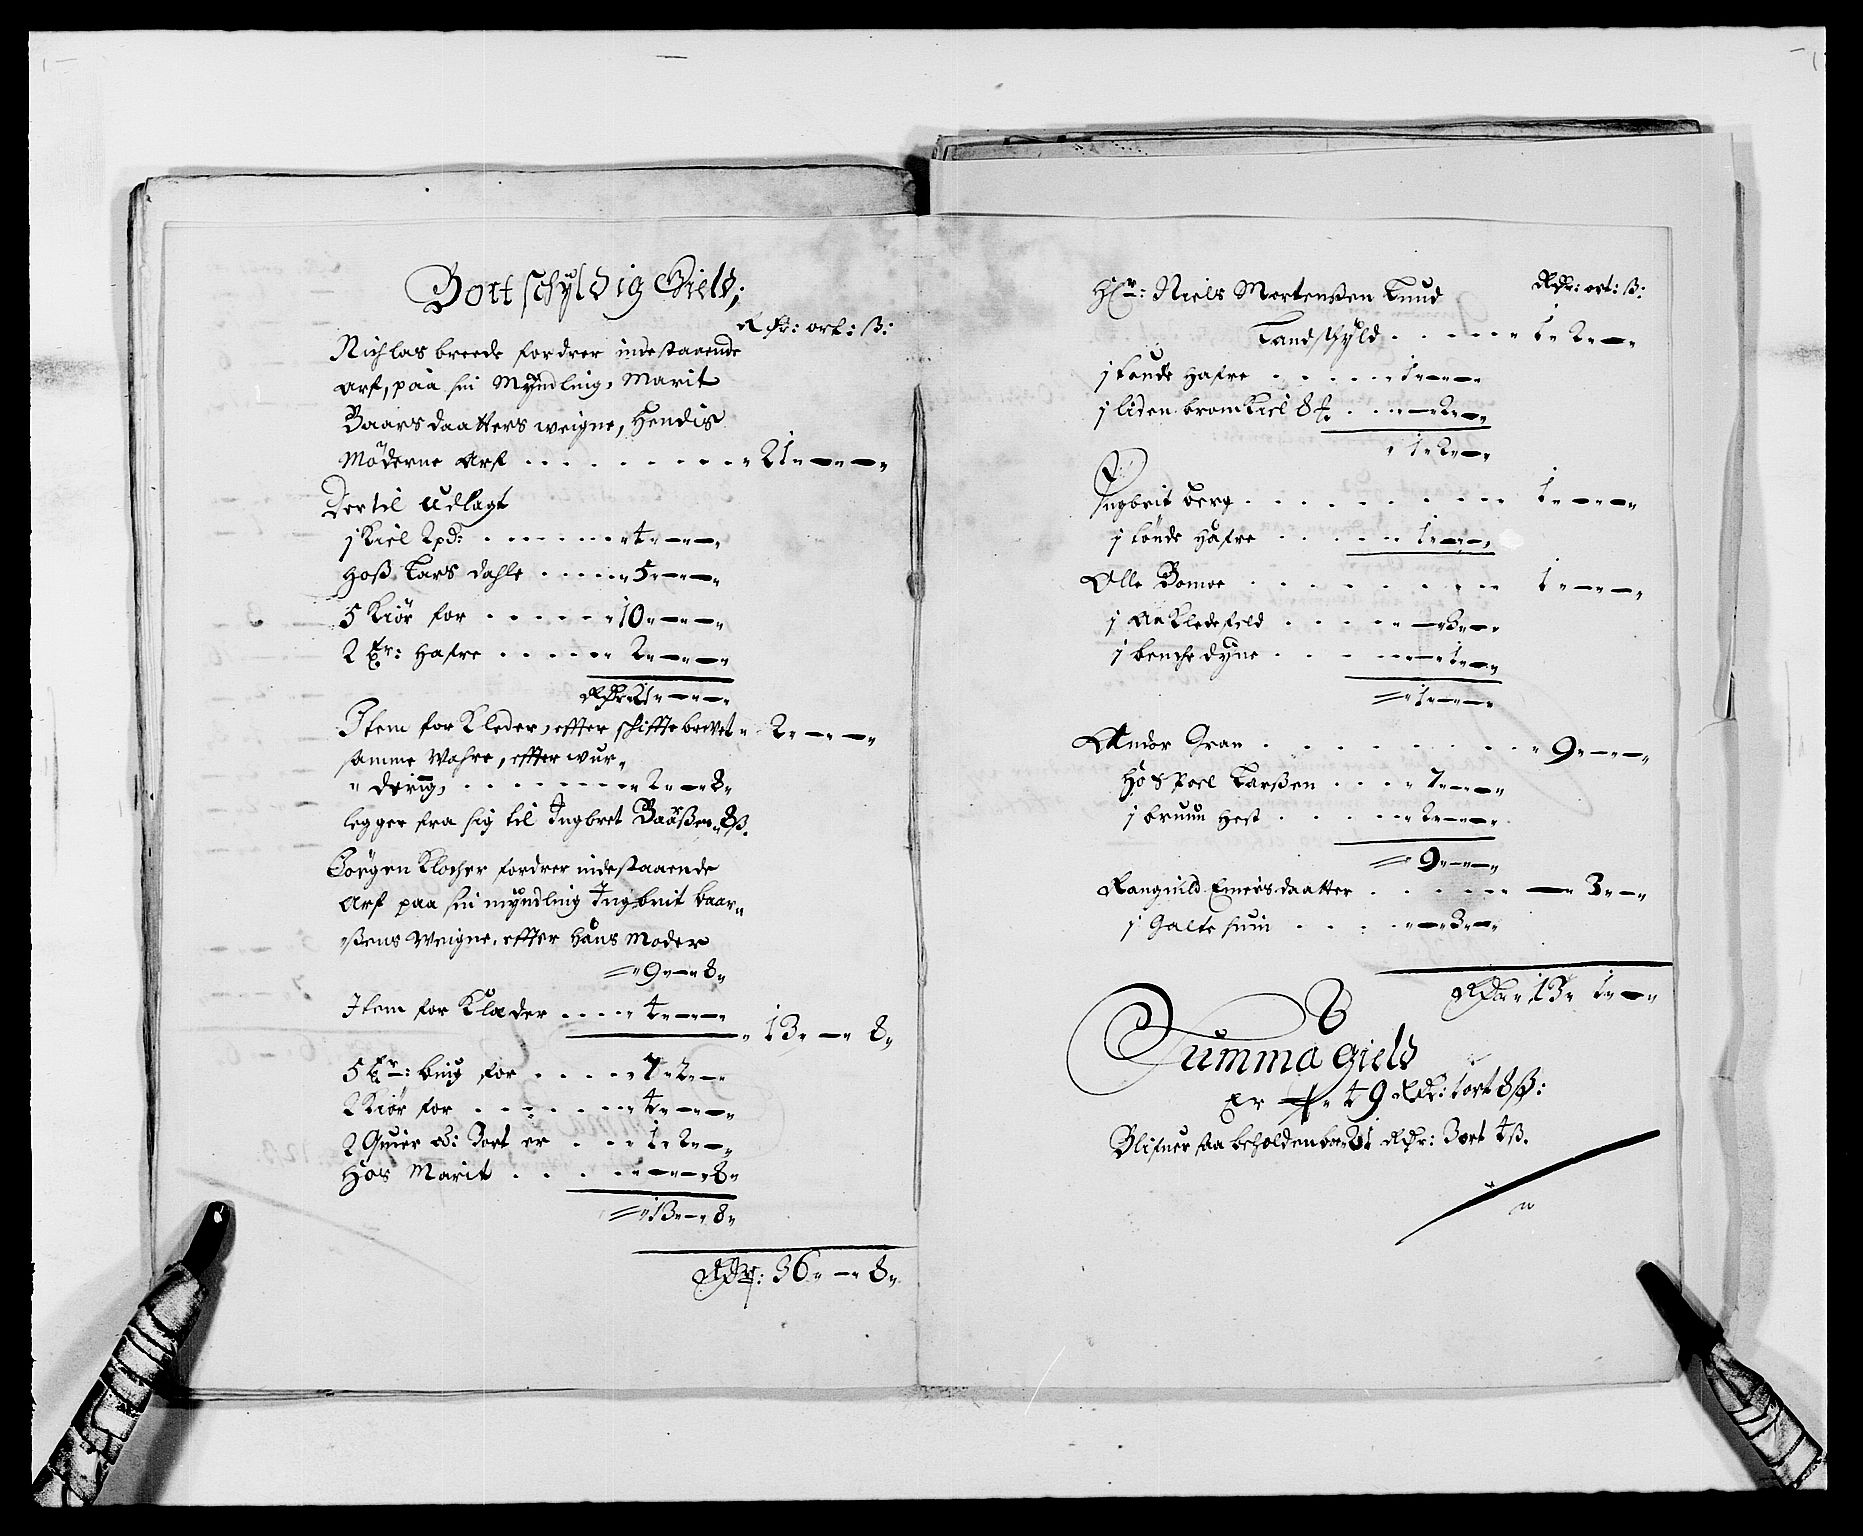 Bortschyldig Gield;
Rdr: ort: ß:
Nichlas breede fordrer indestaaende
Arf, paa sin Myndling, Marit
Baarsdaatters weigne, Hendis
Möderne Arf . . . . . . . . . „ 21„ — „ — „
Dertil Udlagt
j Kiel 2pd: . . . . . . „ 4„ — „ — „
Hoß Lars dahle . . . . . „ 5„ — „ — „
5 Kiör for . . . . . . „ 10„ — „ — „
2 Tr: Hafre . . . . . „ 2„ — „ — „
Rdr „ 21„ — „ — „
Item for Kleder, effter schifftebrevet „ 2„ — „ — „
samme Wahre, effter wur„
„dering, . . . . . . . . „ 2„ — „ 8„
legger fra sig til Ingbret Baarßen „ 8ß.
Jörgen Klocher fordrer indestaaende
Arf paa sin myndling Ingbrit baar„
„ßens weigne, effter Hans Moder
„ 9„ — „ 8„
Item for Klæder . . . . „ 4„ — „ — „
„ 13„ — „ 8„
5 Tr: biug for . . . . . „ 7„ 2„ — „
2 Kiör for . . . . . . . „ 4„ — „ — „
2 Quier er . . . „ 1„ 2„ — „
Hos Marit . . . . . „ — „ — „ 8„
„ 13„ — „ 8„
Rdr: 36„ — „ 8„
Hr: Niels Mortenßen Lund
Rdr: ort: ß:
Landschyld . . . . . . „ 1„ 2„ — „
j tönde Hafre . . . . . . „ 1„ — „ — „
j liden bromkiel . . . „ — „ 2„ — „
„ 1„ 2„ — „
Ingbrit berg . . . . . . . . . 1„ — „ — „
j tönde Hafre . . . . . 1„ — „ — „
Olle Bomoe . . . . . . . . . 1„ — „ — „
j Aakledefeld . . . . . „ — „ 3„ — „
j benche dyne . . . . . „ — „ 1„ — „
„ 1„ — „ — „
Andor Gran . . . . . . . . „ 9„ — „ — „
Hos Poel Larßen . . . . „ 7„ — „ — „
j bruun Hest . . . . . „ 2„ — „ — „
„ 9„ — „ — „
Ranguild Einersdaatter . . . . . — „ 3„ — „
j Galte suin . . . . . „ — „ 3„ — „
Rdr „ 13„ 1„ — „
Summa Gield
Er „ 49 Rdr: 1 ort 8 ß:
Blifuer saa beholden boe 21 Rdr: 3 ort 4 ß.